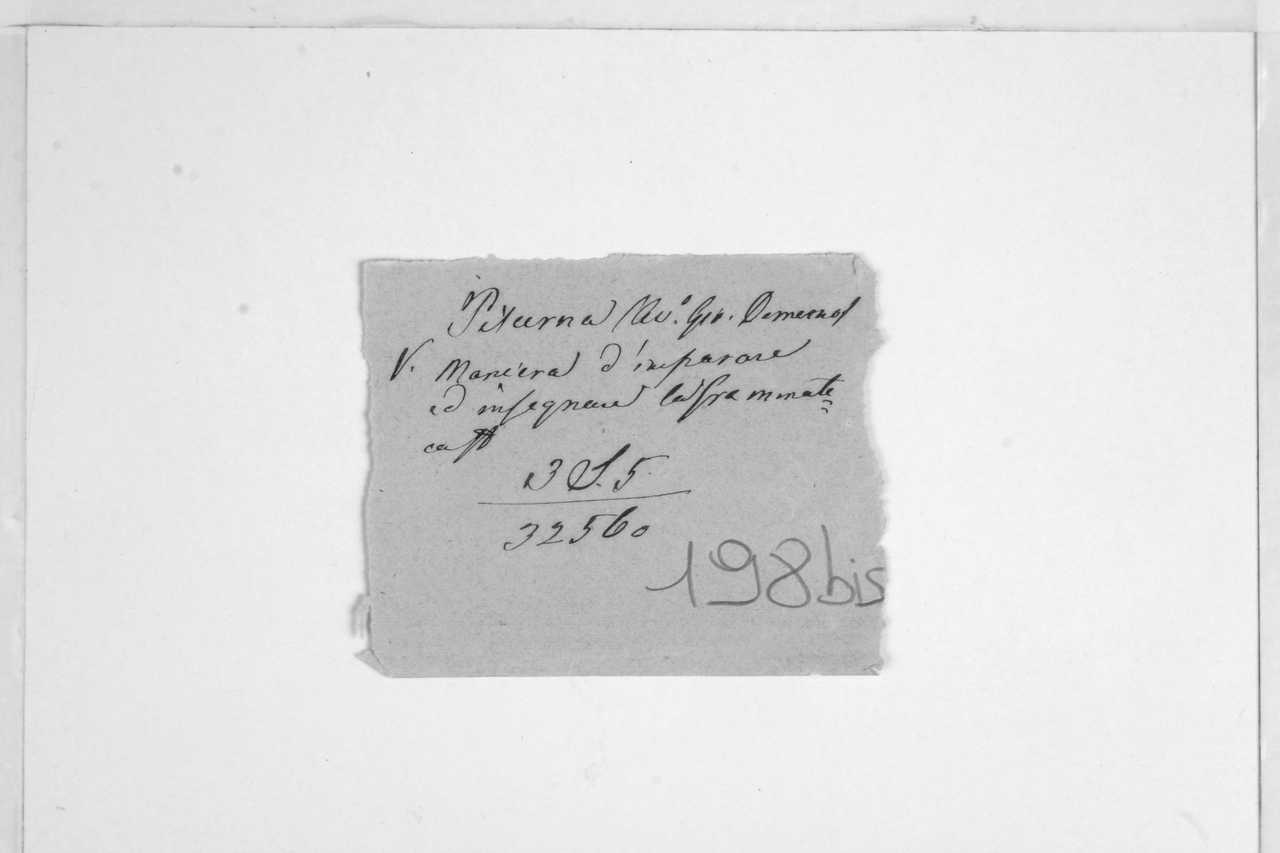 Piturna Giu. Domenico
V. Maniera d'imparare
ed insegnare la Grammati=
ca
3 S. 5.
32560
198 bis